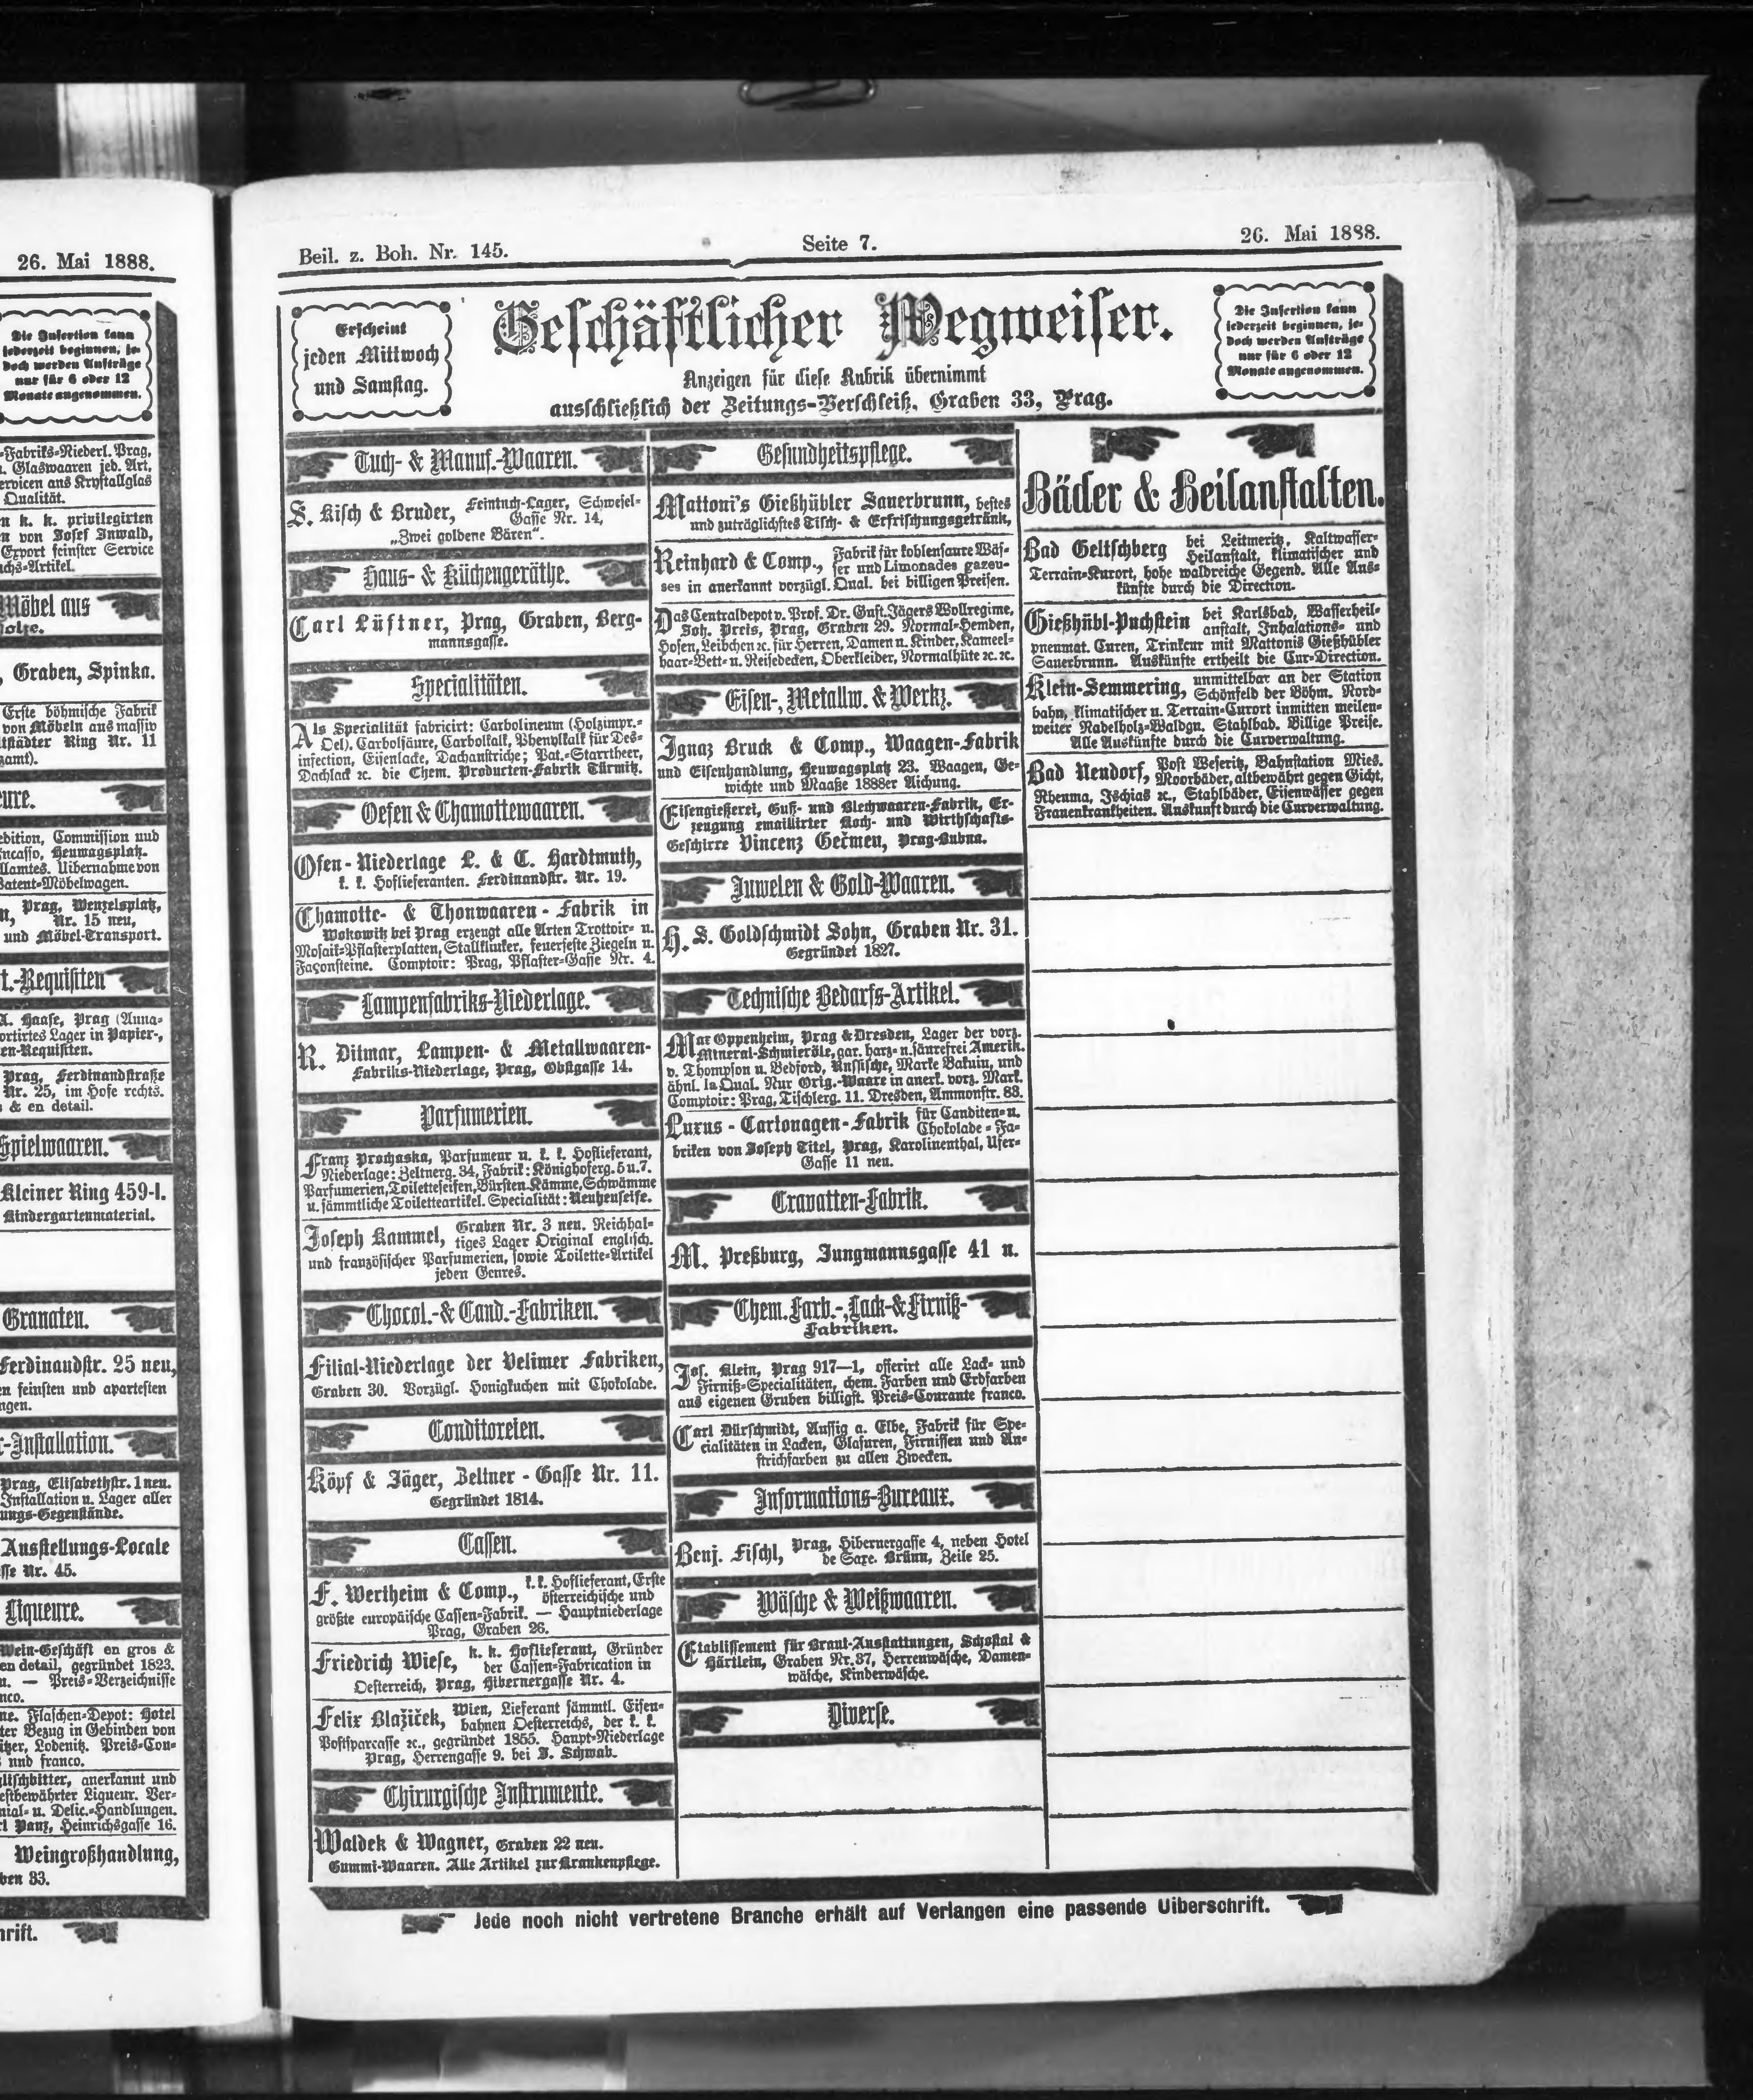 26. Mai 1888.
Die Insertion kann
jederzeit beginnen, je-
doch werden Aufträge
nur für 6 oder 12
Monate angenommen.
-Fabriks-Niederl. Prag,
Glaswaaren jed. Art,
ervicen aus Krystallglas
Qualität.
n k. k. privilegirten
n von Josef Inwald,
Export feinster Service
chs-Artikel.
Möbel aus
olze.
, Graben, Spinka.
Erste böhmische Fabrik
von Möbeln aus massiv
ltstädter Ring Nr. 11
zamt).
ure.
edition, Commission und
ncasso, Heuwagsplatz.
llamtes. Uibernahme von
Patent-Möbelwagen.
n, Prag, Wenzelsplatz,
Nr. 15 neu,
und Möbel-Transport.
t.-Requisiten
A. Haase, Prag (Anna-
ortirtes Lager in Papier-,
en-Requisiten.
Prag, Ferdinandstraße
Nr. 25, im Hofe rechts.
s & en detail.
Spielwaaren.
Kleiner Ring 459-I.
Kindergartenmaterial.
Granaten.
Ferdinandstr. 25 neu,
en feinsten und apartesten
ngen.
r-Installation.
Prag, Elisabethstr. 1 neu.
Installation u. Lager aller
ungs-Gegenstände.
Ausstellungs-Locale
sse Nr. 45.
Liqueure.
Wein-Geschäft en gros &
en detail, gegründet 1823.
n. — Preis-Verzeichnisse
nco.
ne. Flaschen-Depot: Hotel
ter Bezug in Gebinden von
itzer, Lodenitz. Preis-Cou-
s und franco.
ltschbitter, anerkannt und
estbewährter Liqueur. Ver-
nial- u. Delic.-Handlungen.
rl Panz, Heinrichsgasse 16.
Weingroßhandlung,
ben 33.
hrift.
Beil. z. Boh. Nr. 145.
Seite 7.
26. Mai 1888.
Erscheint
jeden Mittwoch
und Samstag.
Geschäftlicher Wegweiser.
Anzeigen für diese Rubrik übernimmt
ausschließlich der Zeitungs-Verschleiß, Graben 33, Prag.
Die Insertion kann
jederzeit beginnen, je-
doch werden Aufträge
nur für 6 oder 12
Monate angenommen.
Tuch- & Manuf.-Waaren.
S. Kisch & Bruder, Feintuch-Lager, Schwefel-
Gasse Nr. 14,
„Zwei goldene Bären“.
Haus- & Küchengeräthe.
Carl Lüftner, Prag, Graben, Berg-
mannsgasse.
Specialitäten.
Als Specialität fabricirt: Carbolineum (Holzimpr.-
Oel), Carbolsäure, Carbolkalk, Phenolkalk für Des-
infection, Eisenlacke, Dachanstriche; Pat.-Starrtheer,
Dachlack ꝛc. die Chem. Producten-Fabrik Türmitz.
Oefen & Chamottewaaren.
Ofen-Niederlage L. & C. Hardtmuth,
k. k. Hoflieferanten. Ferdinandstr. Nr. 19.
Chamotte- & Thonwaaren-Fabrik in
Wokowitz bei Prag erzeugt alle Arten Trottoir- u.
Mosaik-Pflasterplatten, Stallklinker, feuerfeste Ziegeln u.
Façonsteine. Comptoir: Prag, Pflaster-Gasse Nr. 4.
Lampenfabriks-Niederlage.
R. Ditmar, Lampen- & Metallwaaren-
Fabriks-Niederlage, Prag, Obstgasse 14.
Parfumerien.
Franz Prochaska, Parfumeur u. k. k. Hoflieferant,
Niederlage: Zeltnerg. 34, Fabrik: Königshoferg. 5 u. 7.
Parfumerien, Toiletteseifen, Bürsten, Kämme, Schwämme
u. sämmtliche Toiletteartikel. Specialität: Neuheuseife.
Joseph Kammel, Graben Nr. 3 neu. Reichhal-
tiges Lager Original englisch.
und französischer Parfumerien, sowie Toilette-Artikel
jeden Genres.
Chocol.- & Cand.-Fabriken.
Filial-Niederlage der Velimer Fabriken,
Graben 30. Vorzügl. Honigkuchen mit Chokolade.
Conditoreien.
Köpf & Jäger, Zeltner-Gasse Nr. 11.
Gegründet 1814.
Cassen.
F. Wertheim & Comp., k. k. Hoflieferant, Erste
österreichische und
größte europäische Cassen-Fabrik. — Hauptniederlage
Prag, Graben 26.
Friedrich Wiese, k. k. Hoflieferant, Gründer
der Cassen-Fabrication in
Oesterreich, Prag, Hibernergasse Nr. 4.
Felix Blažiček, Wien, Lieferant sämmtl. Eisen-
bahnen Oesterreichs, der k. k.
Postsparcasse ꝛc., gegründet 1855. Haupt-Niederlage
Prag, Herrengasse 9. bei J. Schwab.
Chirurgische Instrumente.
Waldek & Wagner, Graben 22 neu.
Gummi-Waaren. Alle Artikel zur Krankenpflege.
Gesundheitspflege.
Mattoni's Gießhübler Sauerbrunn, bestes
und zuträglichstes Tisch- & Erfrischungsgetränk,
Reinhard & Comp., Fabrik für kohlensaure Wäs-
ser und Limonades gazeu-
ses in anerkannt vorzügl. Qual. bei billigen Preisen.
Das Centraldepot v. Prof. Dr. Gust. Jägers Wollregime,
Joh. Preis, Prag, Graben 29. Normal-Hemden,
Hosen, Leibchen ꝛc. für Herren, Damen u. Kinder, Kameel-
haar-Bett- u. Reisedecken, Oberkleider, Normalhüte ꝛc. ꝛc.
Eisen-, Metallw. & Werkz.
Ignaz Bruck & Comp., Waagen-Fabrik
und Eisenhandlung, Heuwagsplatz 23. Waagen, Ge-
wichte und Maaße 1888er Aichung.
Eisengießerei, Guß- und Blechwaaren-Fabrik, Er-
zeugung emaillirter Koch- und Wirthschafts-
Geschirre Vincenz Germen, Prag-Bubna.
Juwelen & Gold-Waaren.
H. S. Goldschmidt Sohn, Graben Nr. 31.
Gegründet 1827.
Technische Bedarfs-Artikel.
Max Oppenheim, Prag & Dresden, Lager der vorz.
Mineral-Schmieröle, gar. harz- u. säurefrei Amerik.
v. Thompson u. Bedford, Russische, Marke Bakuin, und
ähnl. Ia Qual. Nur Orig.-Waare in anerk. vorz. Mark.
Comptoir: Prag, Tischlerg. 11. Dresden, Ammonstr. 88.
Luxus-Cartonagen-Fabrik für Canditen- u.
Chokolade-Fa-
briken von Joseph Titel, Prag, Karolinenthal, Ufer-
Gasse 11 neu.
Cravatten-Fabrik.
M. Preßburg, Jungmannsgasse 41 n.
Chem. Farb.-, Lack- & Firniß-
Fabriken.
Jos. Klein, Prag 917—1, offerirt alle Lack- und
Firniß-Specialitäten, chem. Farben und Erdfarben
aus eigenen Gruben billigst. Preis-Courante franco.
Carl Dürschmidt, Aussig a. Elbe, Fabrik für Spe-
cialitäten in Lacken, Glasuren, Firnissen und An-
strichfarben zu allen Zwecken.
Informations-Bureaux.
Benj. Fischl, Prag, Hibernergasse 4, neben Hotel
de Saxe. Brünn, Zeile 25.
Wäsche & Weißwaaren.
Etablissement für Braut-Ausstattungen, Schostal &
Härtlein, Graben Nr. 37, Herrenwäsche, Damen-
wäsche, Kinderwäsche.
Diverse.
Bäder & Heilanstalten.
Bad Geltschberg bei Leitmeritz, Kaltwasser-
Heilanstalt, klimatischer und
Terrain-Kurort, hohe waldreiche Gegend. Alle Aus-
künfte durch die Direction.
Gießhübl-Puchstein bei Karlsbad, Wasserheil-
anstalt, Inhalations- und
pneumat. Curen, Trinkcur mit Mattonis Gießhübler
Sauerbrunn. Auskünfte ertheilt die Cur-Direction.
Klein-Semmering, unmittelbar an der Station
Schönfeld der Böhm. Nord-
bahn, klimatischer u. Terrain-Curort inmitten meilen-
weiter Nadelholz-Waldgn. Stahlbad. Billige Preise.
Alle Auskünfte durch die Curverwaltung.
Bad Neudorf, Post Weseritz, Bahnstation Mies.
Moorbäder, altbewährt gegen Gicht,
Rheuma, Ischias ꝛc., Stahlbäder, Eisenwässer gegen
Frauenkrankheiten. Auskunft durch die Curverwaltung.
Jede noch nicht vertretene Branche erhält auf Verlangen eine passende Uiberschrift.